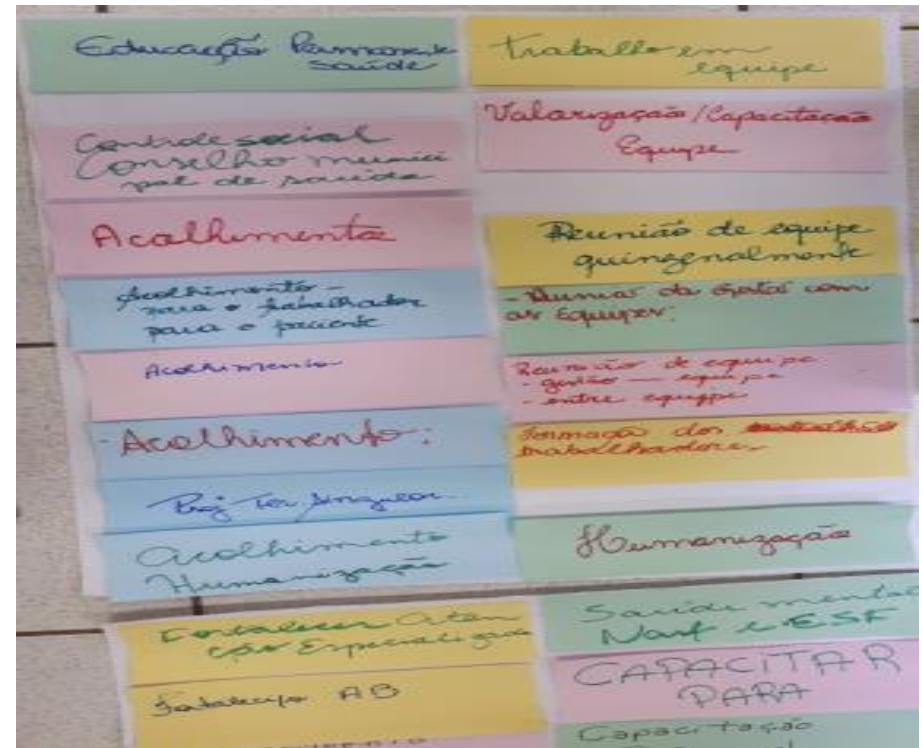 Educação Permanente
saúde
Controle social
Conselho munici
pal de saúde
Acolhimento
Acolhimento -
para o trabalhador
para o paciente
Acolhimento
- Acolhimento:
Proj Ter Singular
Acolhimento
Humanização
Trabalho em
equipe
Valorização/Capacitação
Equipe
Reunião de equipe
quinzenalmente
- Reunião da Gestão com
as Equipes:
Reunião de equipe
- gestão — equipe
- entre equipe
Formação dos
trabalhadores
Humanização
Fortalecer Aten
ção Especializada
AB
Saúde mental
Nasf e ESF
CAPACITAR
PARA
Capacitação